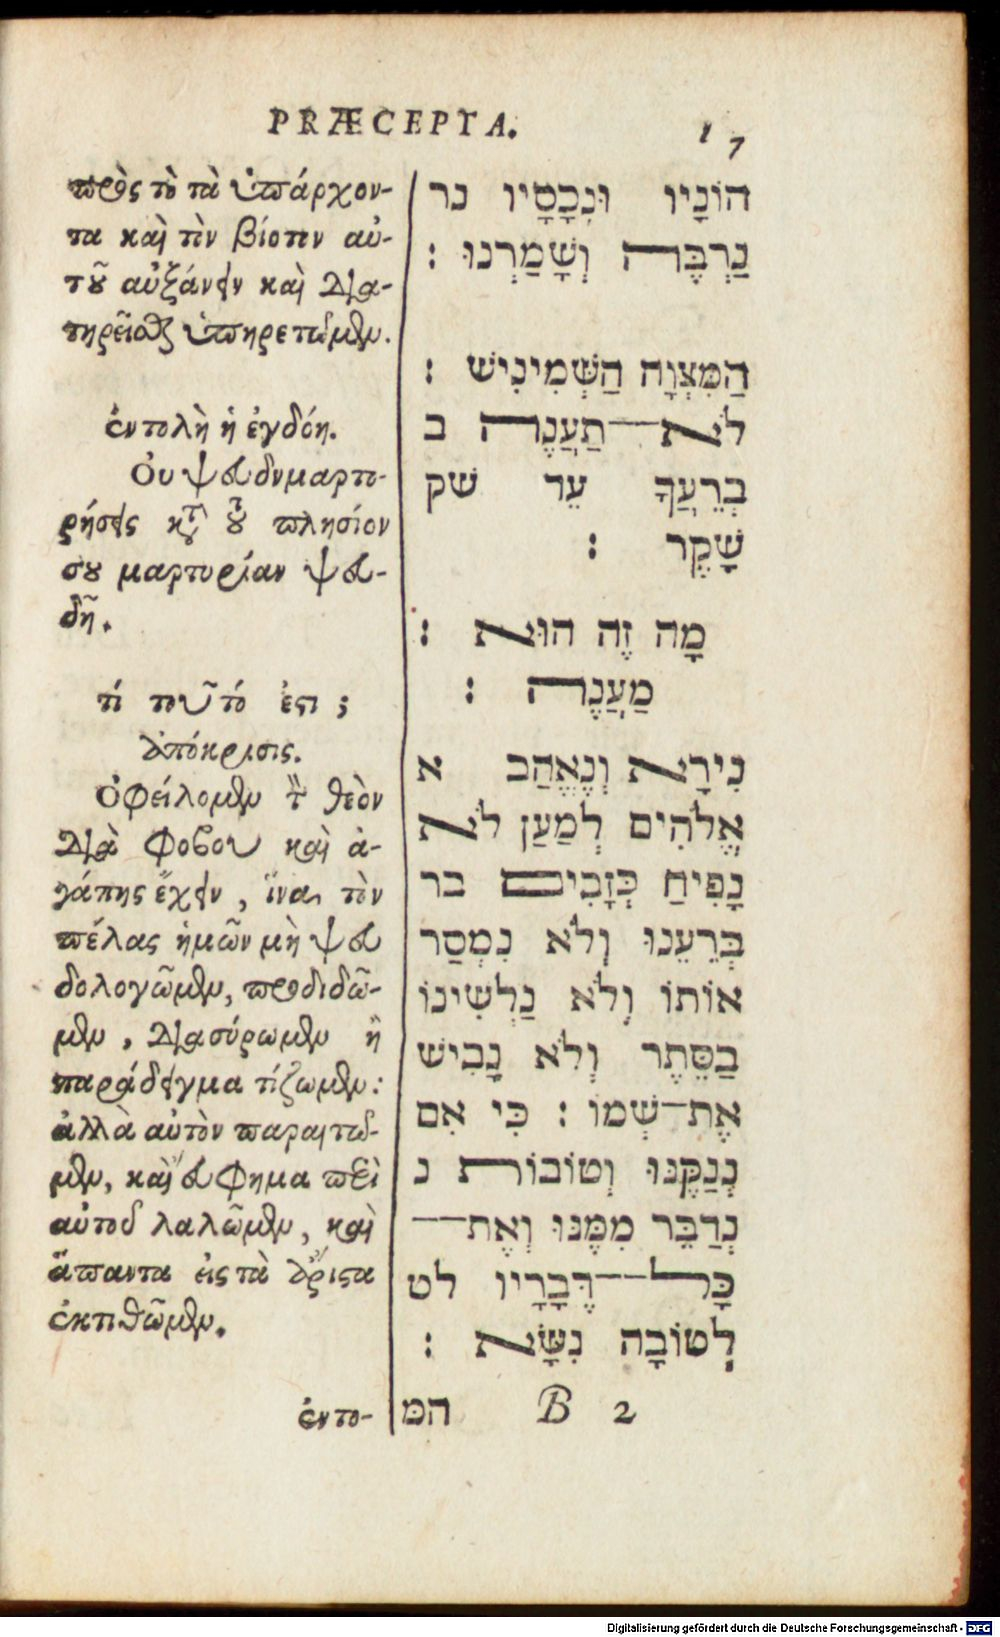 PRÆCEPTA. 17
πρὸς τὸ τὰ ὑπάρχον-
τα καὶ τὴν βίοτην αὐ-
τοῦ αὐξάνειν καὶ δια-
τηρεῖσθαι ὑπηρετῶμεν.
ἐντολὴ ἡ ἐγδόη.
Οὐ ψευδομαρτυ-
ρήσεις κατὰ τοῦ πλησίον
σου μαρτυρίαν ψευ-
δῆ.
τί τοῦτό ἐστι;
ἀπόκρισις.
Ὀφείλομεν τὸν θεὸν
διὰ φόβου καὶ ἀ-
γάπης ἔχειν, ἵνα τὸν
πέλας ἡμῶν μὴ ψευ
δολογῶμεν, προδιδῶ-
μεν, διασύρωμεν ἢ
παράδειγματίζωμεν:
ἀλλὰ αὐτὸν παραιτῶ-
μεν, καὶ εὔφημα περὶ
αὐτοῦ λαλῶμεν, καὶ
ἅπαντα εἰς τὰ ἄριστα
ἐκτιθῶμεν.
ἐντο-
הוֹנָיו וּנְכָסָיו נר
נַרְבֶּה וְשָׁמַרְנוּ :
הַמִּצְוָה הַשְּׁמִינִישׁ :
לֹא־תַעֲנֶה ב
בְרֵעֲךָ עֵד שׁק
שָׁקֶר :
מָה זֶה הוּא :
מַעֲנֶה :
נִירָא וְנֶאֱהַב א
אֱלֹהִים לְמַעַן לֹא
נָפִיחַ כְּזָבִים בר
בְּרֵעֵנוּ וְלֹא נִמְסַר
אוֹתוֹ וְלֹא נַלְשִׁינוֹ
בַסֵּתֶר וְלֹא נָבִישׁ
אֶת־שְׁמוֹ : כִּי אִם
נְנַקֶּנּוּ וְטוֹבוֹת נ
נְדַבֵּר מִמֶּנּוּ וְאֶת־
כָּל־דְּבָרָיו לט
לְטוֹבָה נִשָּׂא :
המ
B 2
Digitalisierung gefördert durch die Deutsche Forschungsgemeinschaft - DFG